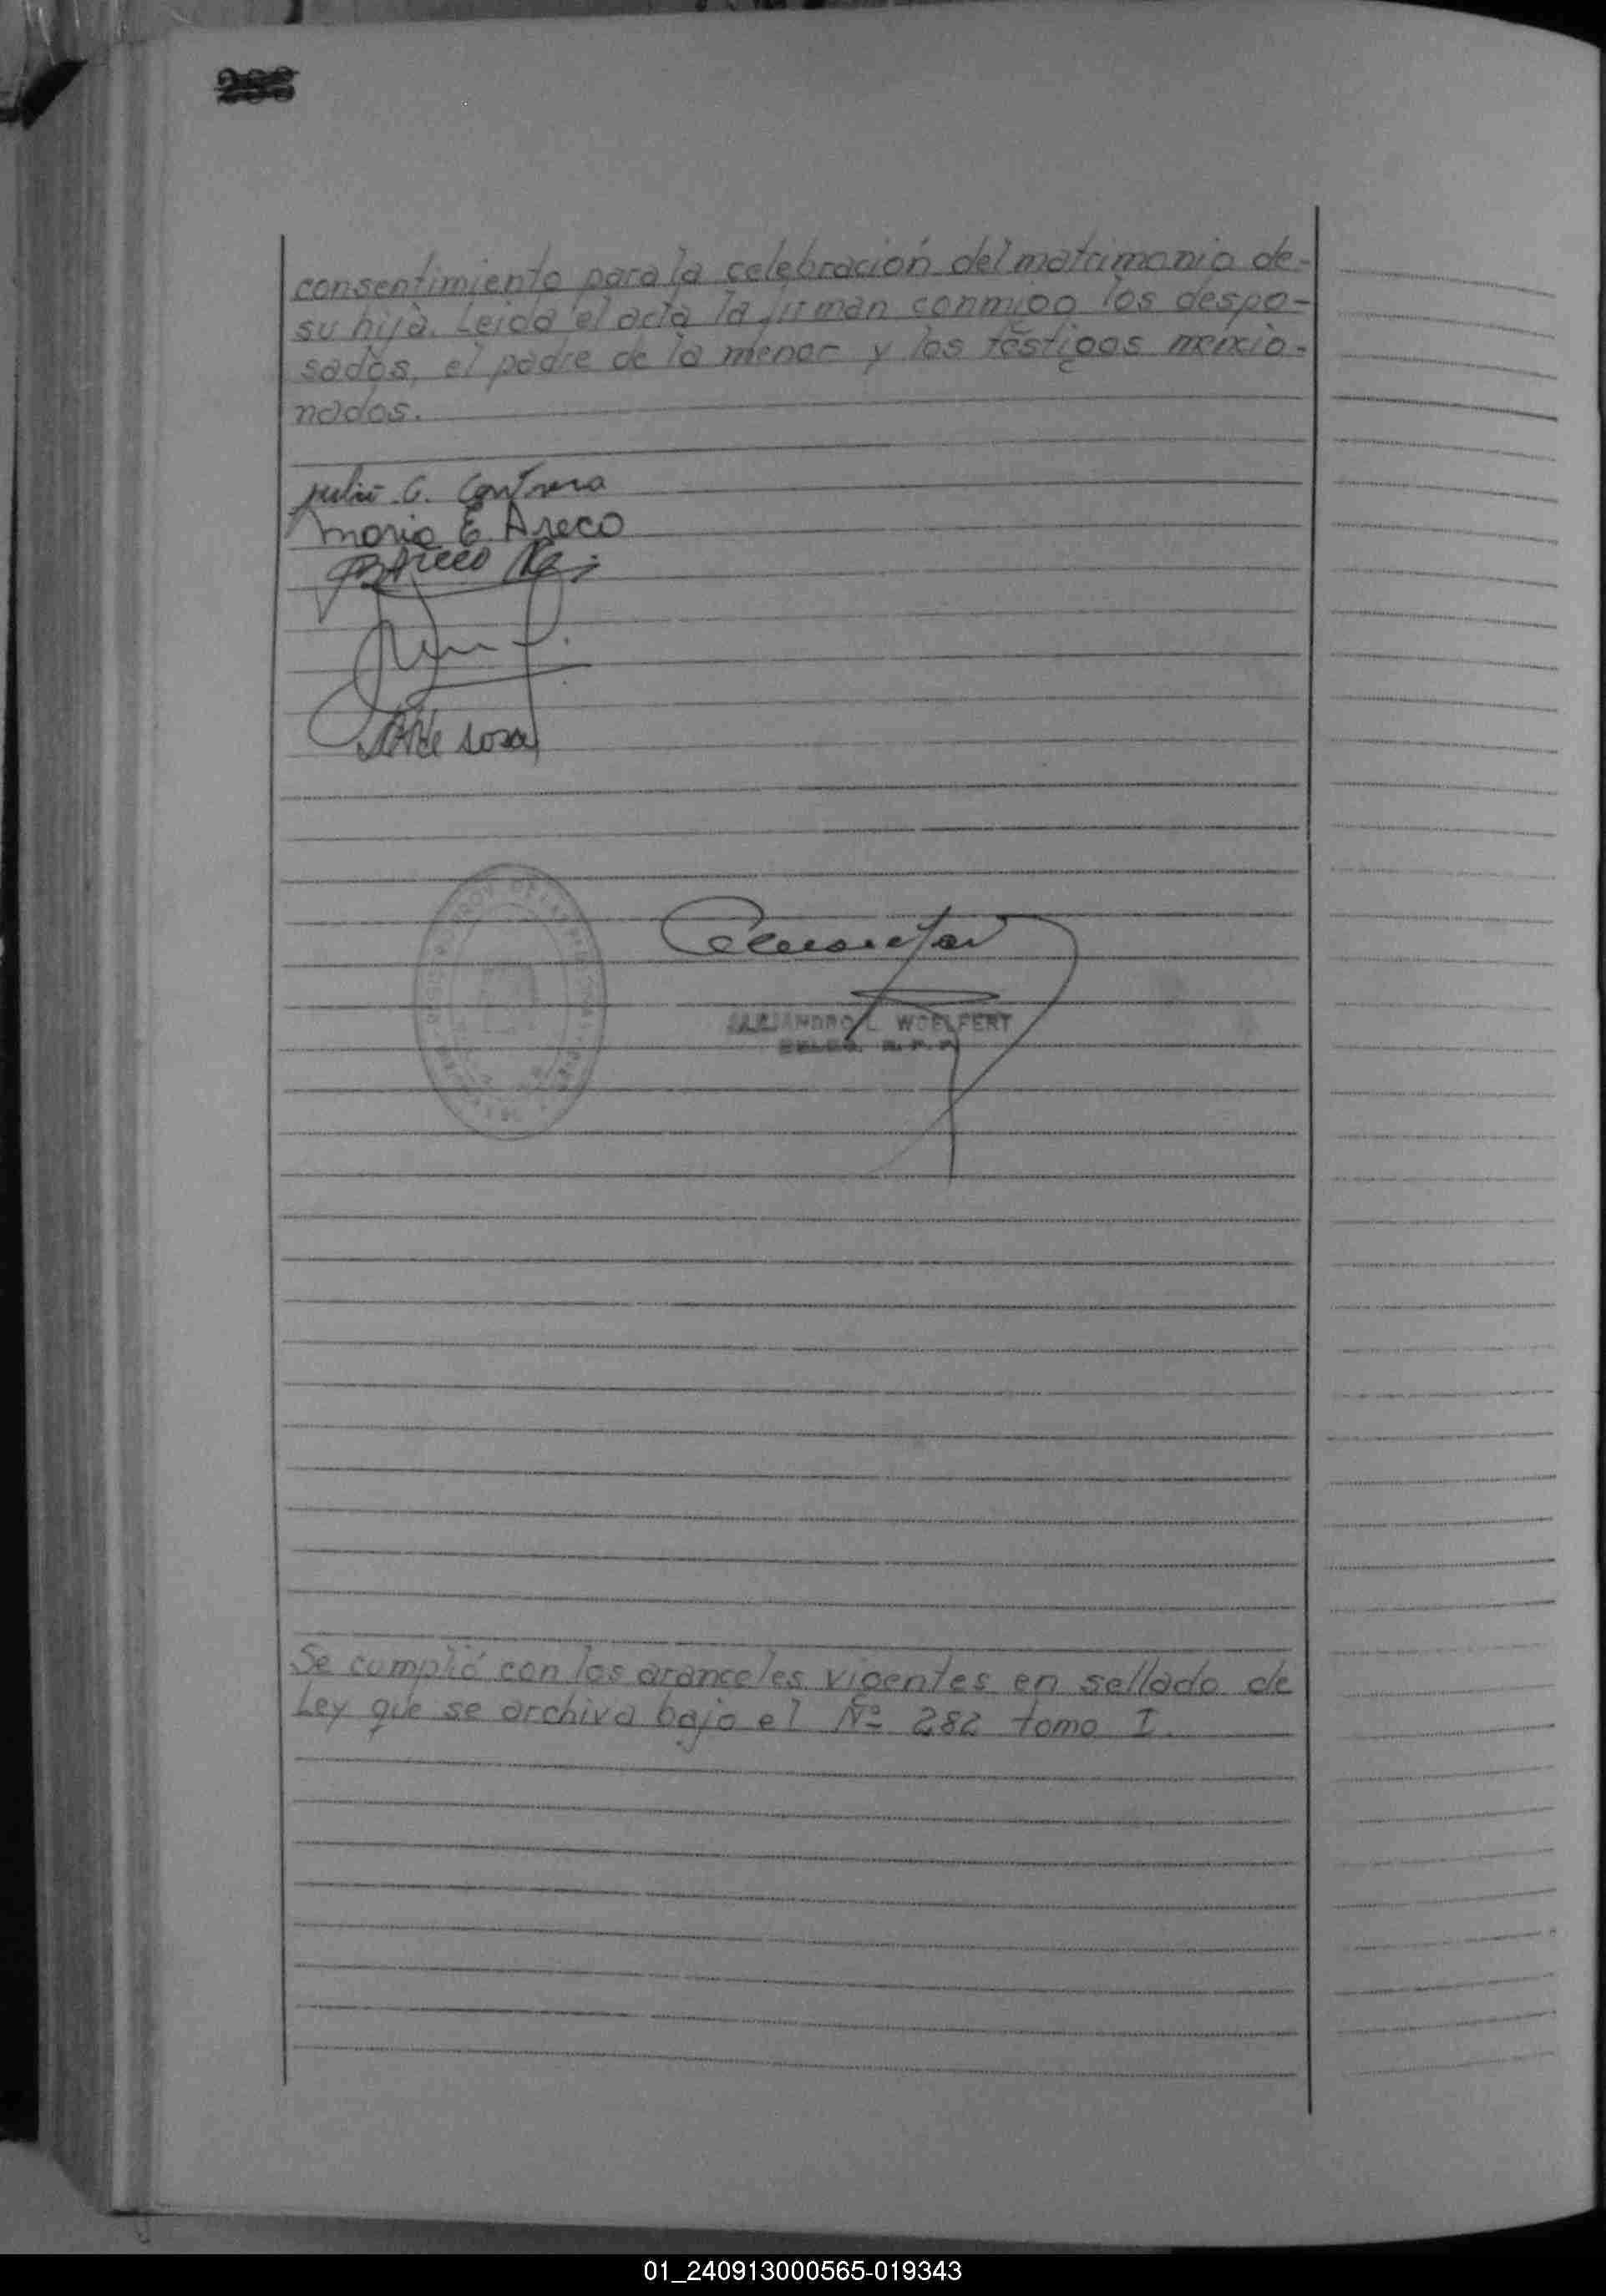 288
consentimiento para la celebración del matrimonio de-
su hija. Leida el acta la firman conmigo los despo-
sados, el padre de la menor y los testigos mencio-
nados.
Julio C. Contrera
Maria E. Areco
BAreco
Sosa
ALEJANDRO L. WOELFERT
DELEG. R. P. P.
Se cumplió con los aranceles vigentes en sellado de
Ley que se archiva bajo el Nº 282 tomo I.
01_240913000565-019343